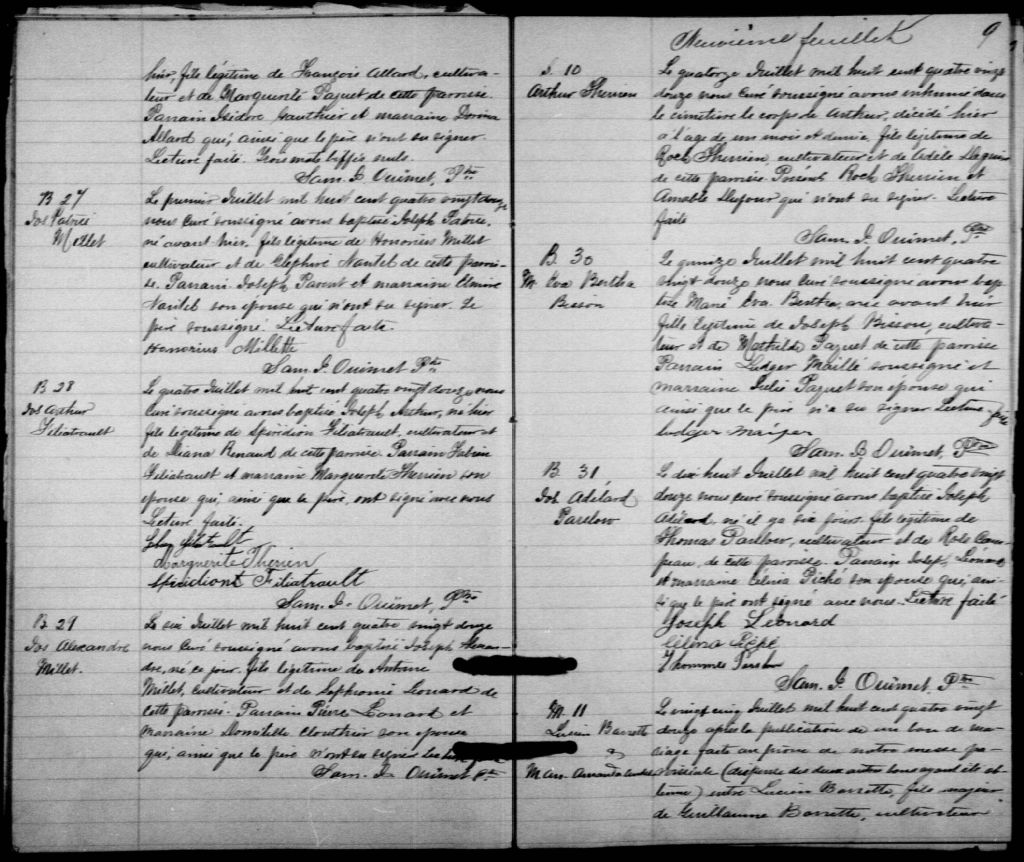 hier, fils légitime de François Allard, cultiva-
teur et de Marguerite Paquet de cette paroisse.
Parrain Isidore Gauthier et marraine Dorina
Allard qui, ainsi que le père n'ont su signer.
Lecture faite. Trois mots biffés nuls.
Sam. J. Ouimet, Ptre
B 27
Jos Patrice
Millet
Le premier Juillet mil huit cent quatre vingt douze
nous Curé soussigné avons baptisé Joseph Patrice,
né avant hier, fils légitime de Honorius Millet
cultivateur et de Zéphire Nantel de cette parois-
se. Parrain Joseph Parent et marraine Elmire
Nantel son épouse qui n'ont su signer. Le
père soussigné. Lecture faite.
Honorius Millette
Sam. J. Ouimet Ptre
B 28
Jos Arthur
Filiatrault
Le quatre Juillet mil huit cent quatre vingt douze nous
Curé soussigné avons baptisé Joseph Arthur, né hier
fils légitime de Spiridion Filiatrault, cultivateur et
de Diana Renaud de cette paroisse. Parrain
Filiatrault et marraine Marguerite Therrien son
épouse qui, ainsi que le père, ont signé avec nous
Lecture faite.
Marguerite Therien
Spiridiont Filiatrault
Sam. J. Ouimet, Ptre
B 29
Jos Alexandre
Millet.
Le six Juillet mil huit cent quatre vingt douze
nous Curé soussigné avons baptisé Joseph Alexan-
dre, né ce jour, fils légitime de Antoine
Millet, cultivateur et de Sophronie Léonard de
cette paroisse. Parrain Pierre Léonard et
marraine Domitille Clouthier son épouse
qui, ainsi que le père n'ont su signer. Lecture
Sam. J. Ouimet Ptre
Neuvième feuillet 9
S. 10
Arthur Therrien
Le quatorze Juillet mil huit cent quatre vingt
douze nous Curé soussigné avons inhumé dans
le cimetière le corps de Arthur, décédé hier
à l'age de un mois et demie, fils légitime de
Roch Therrien, cultivateur et de Adèle
de cette paroisse. Présents Roch Therrien et
Amable Dufour qui n'ont su signer. Lecture
faite
Sam. J. Ouimet, Ptre
B. 30
M. Eva Bertha
Bisson
Le quinze Juillet mil huit cent quatre
vingt douze nous Curé soussigné avons bap-
tisé Marie Eva Bertha, née avant hier
fille légitime de Joseph Bisson, cultiva-
teur et de Mathilde Paquet de cette paroisse
Parrain Ludger Maillé soussigné et
marraine Julie Paquet son épouse qui
ainsi que le père n'a su signer Lecture faite
Ludger
Sam. J. Ouimet, Ptre
B 31
Jos Adélard
Parslow
Le dix huit Juillet mil huit cent quatre vingt
douze nous Curé soussigné avons baptisé Joseph
Adélard, né il y a six jours, fils légitime de
Thomas Parslow, cultivateur et de Rose Cam-
peau, de cette paroisse. Parrain Joseph Léonard
et marraine Célina Piché son épouse qui, ain-
si que le père ont signé avec nous. Lecture faite
Joseph Léonard
Célina Piché
Thommes
Sam. J. Ouimet, Ptre
M. 11
Lucien Barrette
&
Le vingt cinq Juillet mil huit cent quatre vingt
douze après la publication de un ban de ma-
riage faite au prône de notre messe pa-
roissiale (dispense des deux autres bans ayant été ob-
tenue) entre Lucien Barrette, fils majeur
de Guillaume Barrette, cultivateur